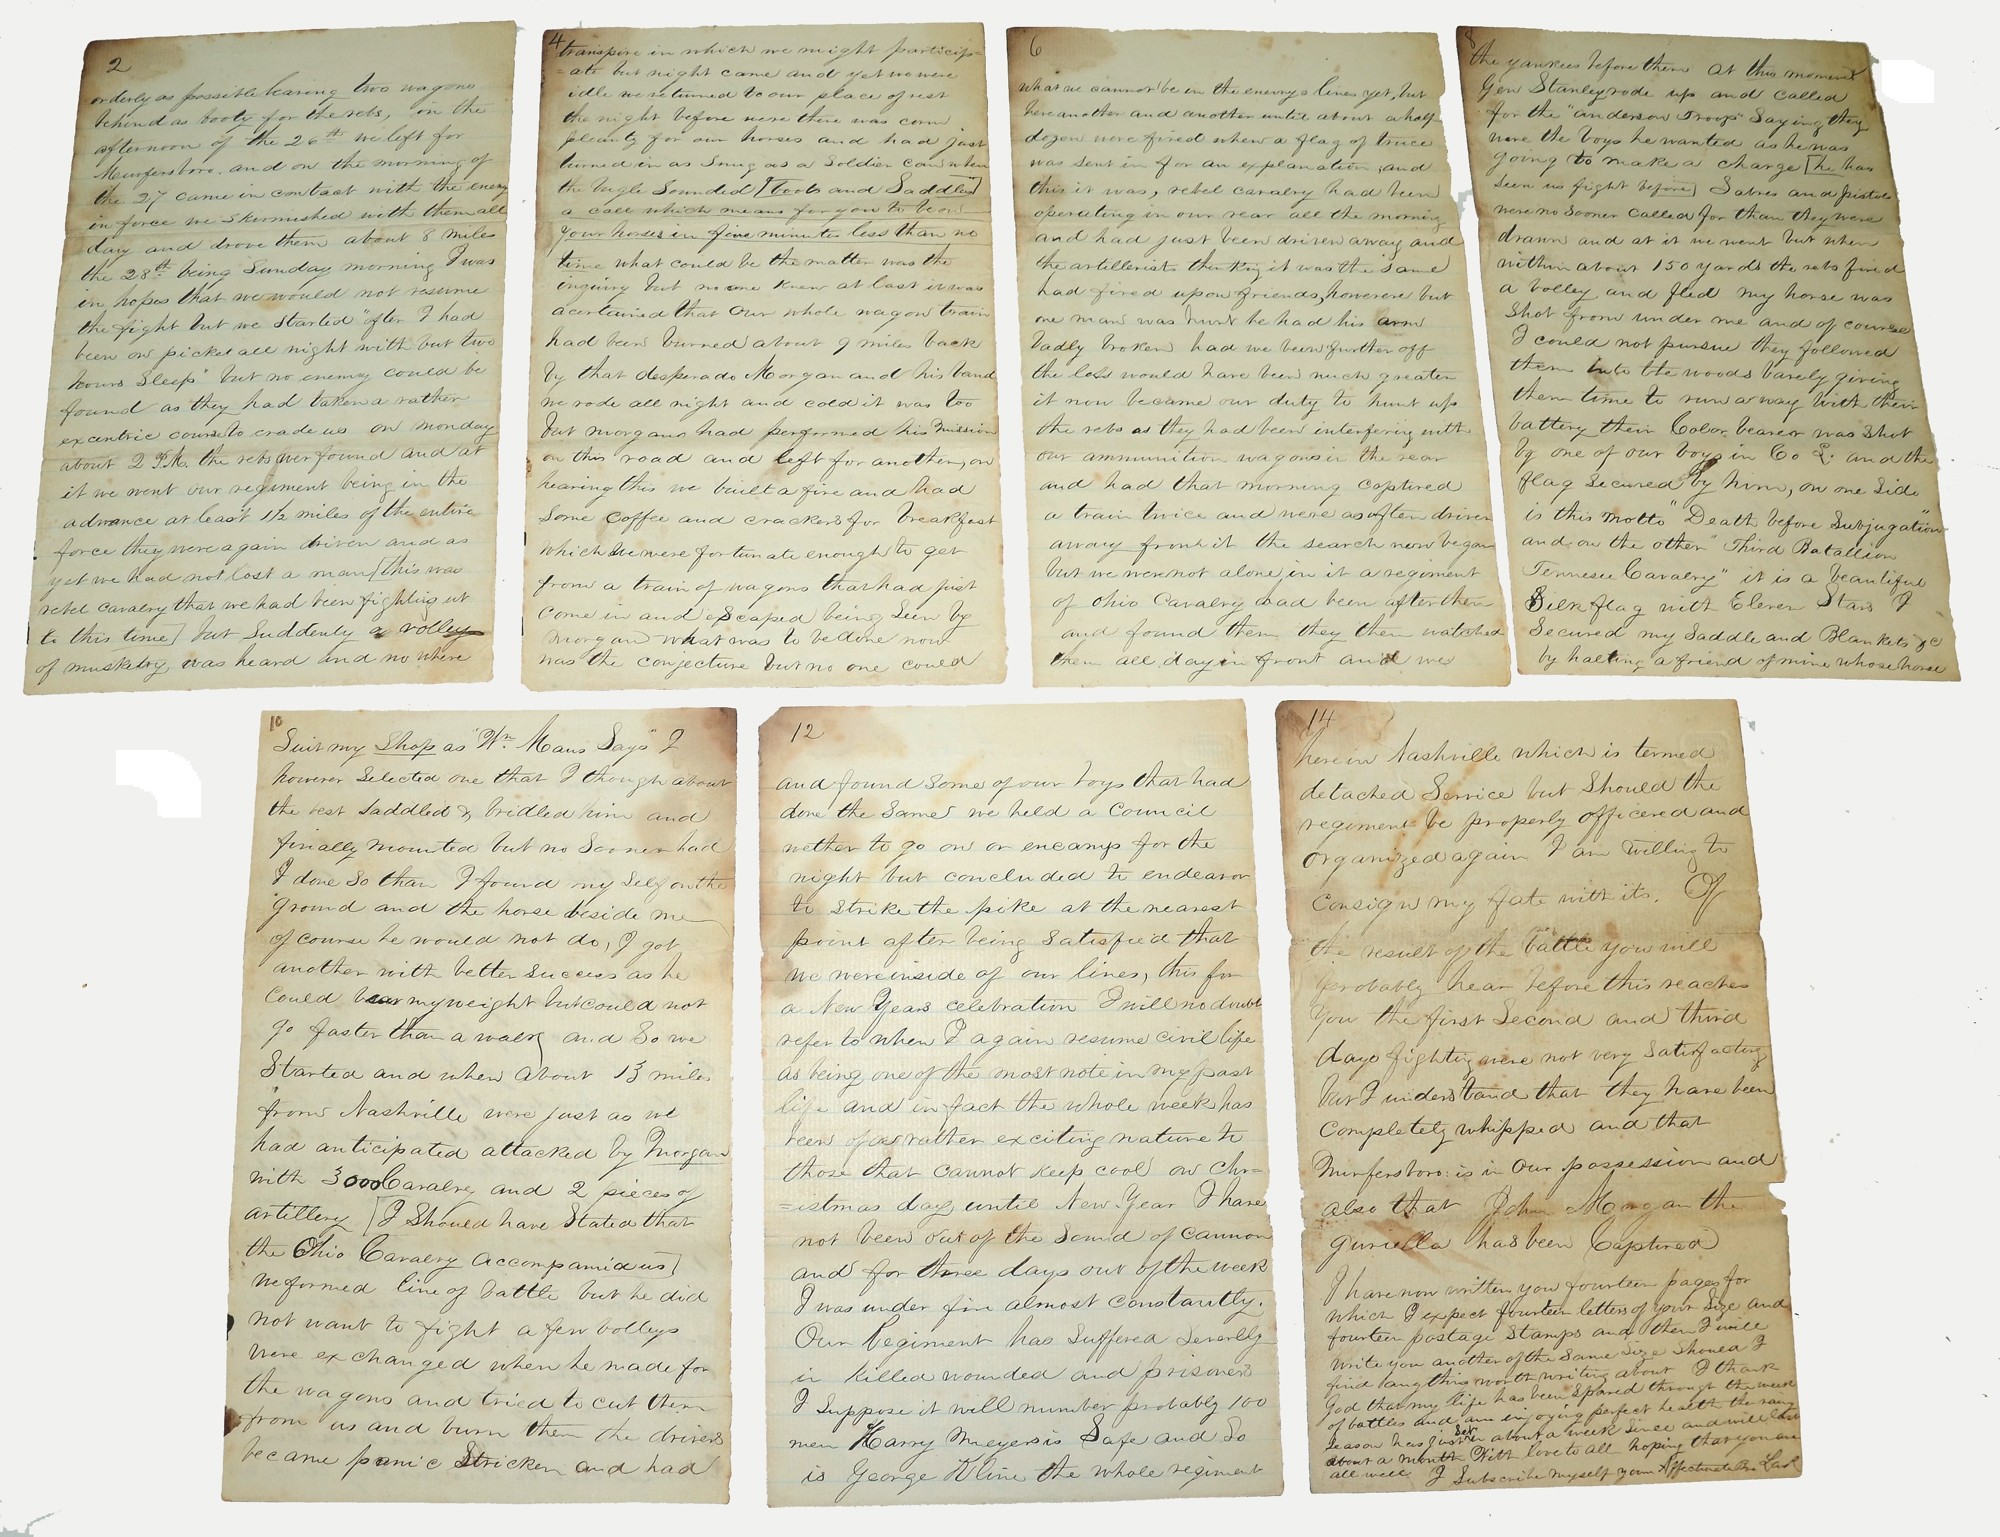 2
orderly as possible leaving two wagons
behind as booty for the rebs, "on the
afternoon of the 26th we left for
Murfersboro. and on the morning of
the 27 came in contact with the enemy
in force we skermished with them all
day and drove them about 8 miles
the 28th being Sunday morning I was
in hopes that we would not resume
the fight but we started "after I had
been on picket all night with but two
hours Sleep" but no enemy could be
found as they had taken a rather
excentric course to evade us on monday
about 2 P.M. the rebs were found and at
it we went our regiment being in the
advance at least 1 1/2 miles of the entire
force they were again driven and as
yet we had not lost a man [this was
rebel cavalry that we had been fighting up
to this time] but Suddenly a volley
of musketry was heard and no where
4
transpire in which we might particip=
=ate but night came and yet we were
idle we returned to our place of rest
the night before were there was corn
plenty for our horses and had just
turned in as Snug as a Soldier can when
the bugle Sounded [boots and Saddles]
a call which means for you to be on
your horses in five minutes less than no
time what could be the matter was the
inquiry but no one knew at last it was
acertained that our whole wagon train
had been burned about 9 miles back
by that desperado Morgan and his band
we rode all night and cold it was too
but morgans had performed his mission
on this road and left for another, on
hearing this we built a fire and had
Some coffee and crackers for breakfast
which we were fortunate enough to get
from a train of wagons that had just
come in and escaped being Seen by
Morgan what was to be done now
was the conjecture but no one could
6
what we cannot be in the enemys lines yet, but
here another and another until about a half
dozen were fired when a flag of truce
was sent in for an explanation, and
this it was, rebel cavalry had been
operating in our rear all the morning
and had just been driven away and
the artillerists thinking it was the Same
had fired upon friends, however but
one man was hurt he had his arm
badly broken had we been further off
the loss would have been much greater
it now became our duty to hunt up
the rebs as they had been interfering with
our ammunition wagons in the rear
and had that morning captured
a train twice and were as often driven
away from it the search now began
but we were not alone in it a regiment
of ohio Cavalry had been after them
and found them they then watched
them all day in front and we
8
the yankees before them at this moment
Gen Stanley rode up and called
for the "anderson Troop" Saying they
were the boys he wanted as he was
going to make a charge [he has
seen us fight before] Sabres and pistols
were no Sooner called for than they were
drawn and at it we went but when
within about 150 yards the rebs fired
a volley and fled my horse was
Shot from under me and of course
I could not pursue they followed
them into the woods barely giving
them time to run away with their
battery their Color bearer was Shot
by one of our boys in Co L. and the
flag Secured by him, on one Side
is this motto "Death before Subjugation"
and on the other "Third Batallion
Tennesee Cavalry" it is a beautiful
Silk flag with Eleven Stars I
Secured my Saddle and Blankets &c
by halting a friend of mine whose horse
10
Suit my Shop as "Wm Maus Says" I
however Selected one that I though about
the best Saddled & bridled him and
finially mounted but no Sooner had
I done So than I found my Self on the
ground and the horse beside me
of course he would not do, I got
another with better Success as he
Could bear my weight but could not
go faster than a walk and So we
Started and when about 13 miles
from Nashville were just as we
had anticipated attacked by Morgan
with 3000 Cavalry and 2 pieces of
artillery [I Should have Stated that
the Ohio Cavalry accompanid us]
we formed line of battle but he did
not want to fight a few volleys
were exchanged when he made for
the wagons and tried to cut them
from us and burn them the drivers
became panic Stricken and had
12
and found Some of our boys that had
done the Same we held a Council
wether to go on or encamp for the
night but concluded to endeavor
to Strike the pike at the nearest
point after being Satisfied that
we were inside of our lines, this for
a New Years celebration I will no doubt
refer to when I again resume civil life
as being one of the most note in my past
life and in fact the whole week has
been of a rather exciting nature to
those that cannot keep cool on Chr=
=istmas day until New Year I have
not been out of the Sound of cannon
and for three days out of the week
I was under fire almost constantly.
Our Regiment has Suffered Severely
in killed wounded and prisoners
I Suppose it will number probably 100
men Harry Meyers is Safe and So
is George Kline the whole regiment
14
here in Nashville which is termed
detached Service but Should the
regiment be properly officered and
organized again I am willing to
consign my fate with its. Of
the result of the battle you will
probably hear before this reaches
you the first Second and third
days fighting were not very Satisfactory
but I understand that they have been
completely whipped and that
Murfersboro: is in Our possession and
also that John Morgan the
guriella has been Captured
I have now written you fourteen pages for
which I expect fourteen letters of your Size and
fourteen postage Stamps and then I will
write you another of the Same Size Should I
find anything worth writing about I thank
God that my life has been Spared through the week
of battles and am enjoying perfect health the rainy
Season has just Set in about a week Since and will last
about a month With love to all hoping that you are
all well I Subscribe myself your Affectionate Bro